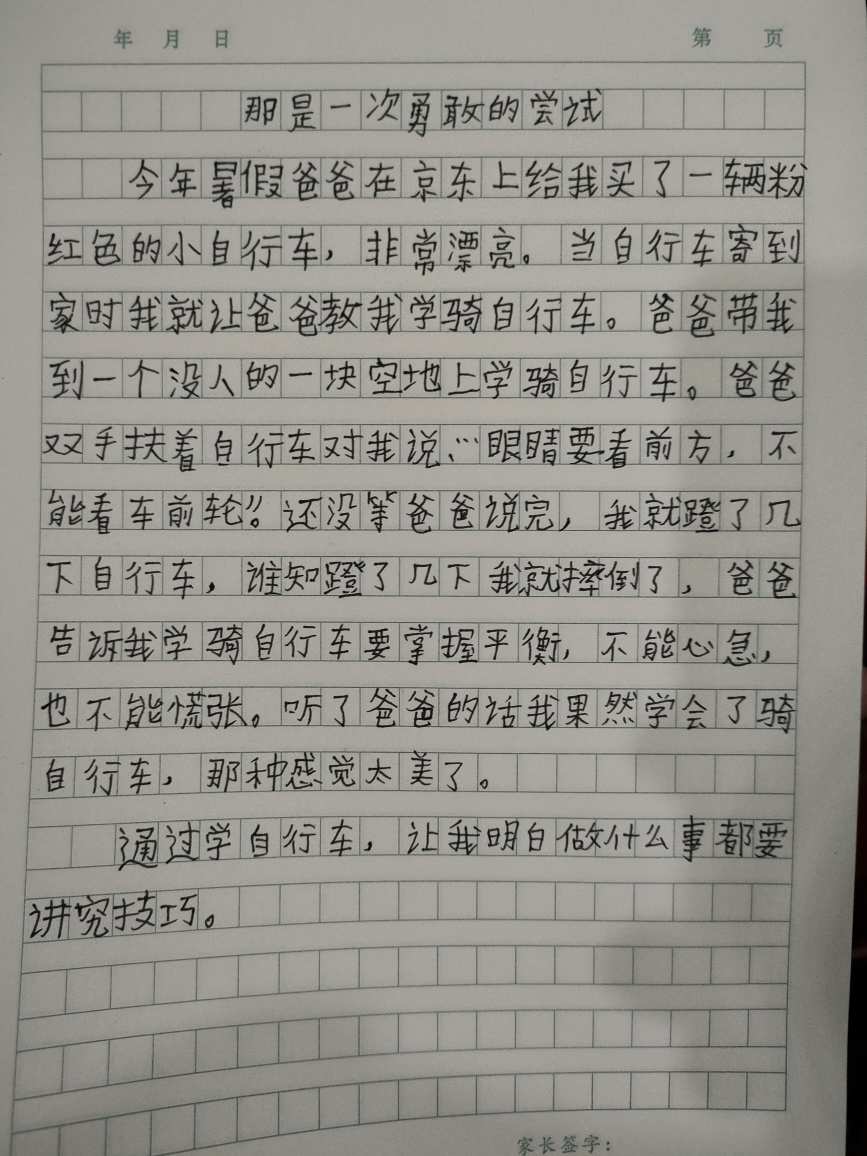 年 月 日 第 页
那是一次勇敢的尝试
今年暑假爸爸在京东上给我买了一辆粉
红色的小自行车，非常漂亮。当自行车寄到
家时我就让爸爸教我学骑自行车。爸爸带我
到一个没人的一块空地上学骑自行车。爸爸
双手扶着自行车对我说：“眼睛要看前方，不
能看车前轮”。还没等爸爸说完，我就蹬了几
下自行车，谁知蹬了几下我就摔倒了，爸爸
告诉我学骑自行车要掌握平衡，不能心急，
也不能慌张。听了爸爸的话我果然学会了骑
自行车，那种感觉太美了。
通过学自行车，让我明白做什么事都要
讲究技巧。
家长签字：